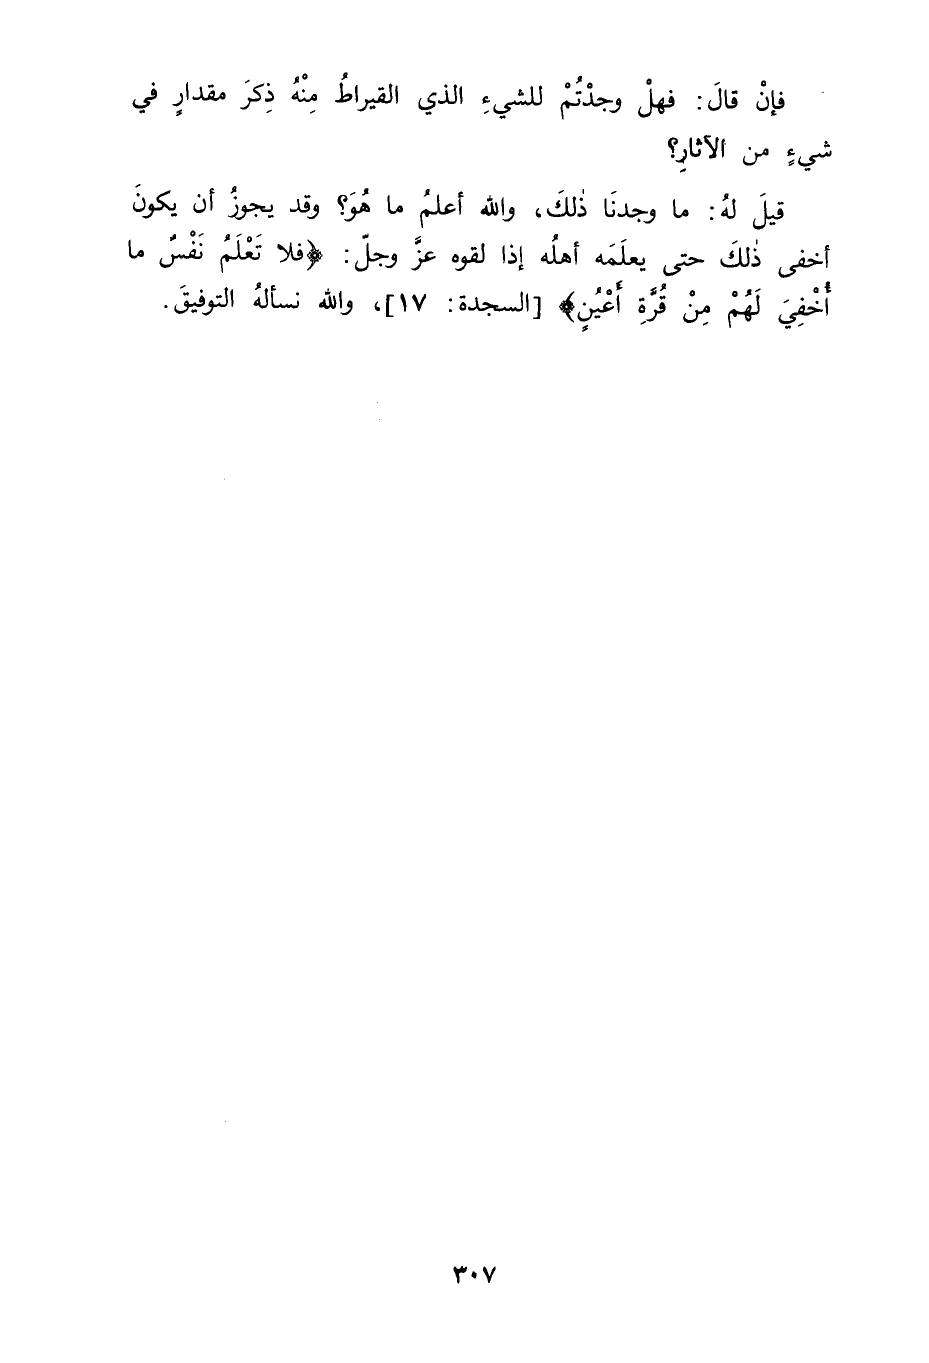 فإنْ قالَ: فهلْ وجدْتُمْ للشيءِ الذي القيراطُ مِنْهُ ذِكرَ مقدارٍ في
شيءٍ من الآثارِ؟
قيلَ لهُ: ما وجدنَا ذٰلكَ، والله أعلمُ ما هُوَ؟ وقد يجوزُ أن يكونَ
أخفى ذٰلكَ حتى يعلَمَه أهلُه إذا لقوه عزَّ وجلّ: ﴿فلا تَعْلَمُ نَفْسٌ ما
أُخْفِيَ لَهُمْ مِنْ قُرَّةِ أَعْيُنٍ﴾ [السجدة: ١٧]، والله نسألهُ التوفيقَ.
٣٠٧